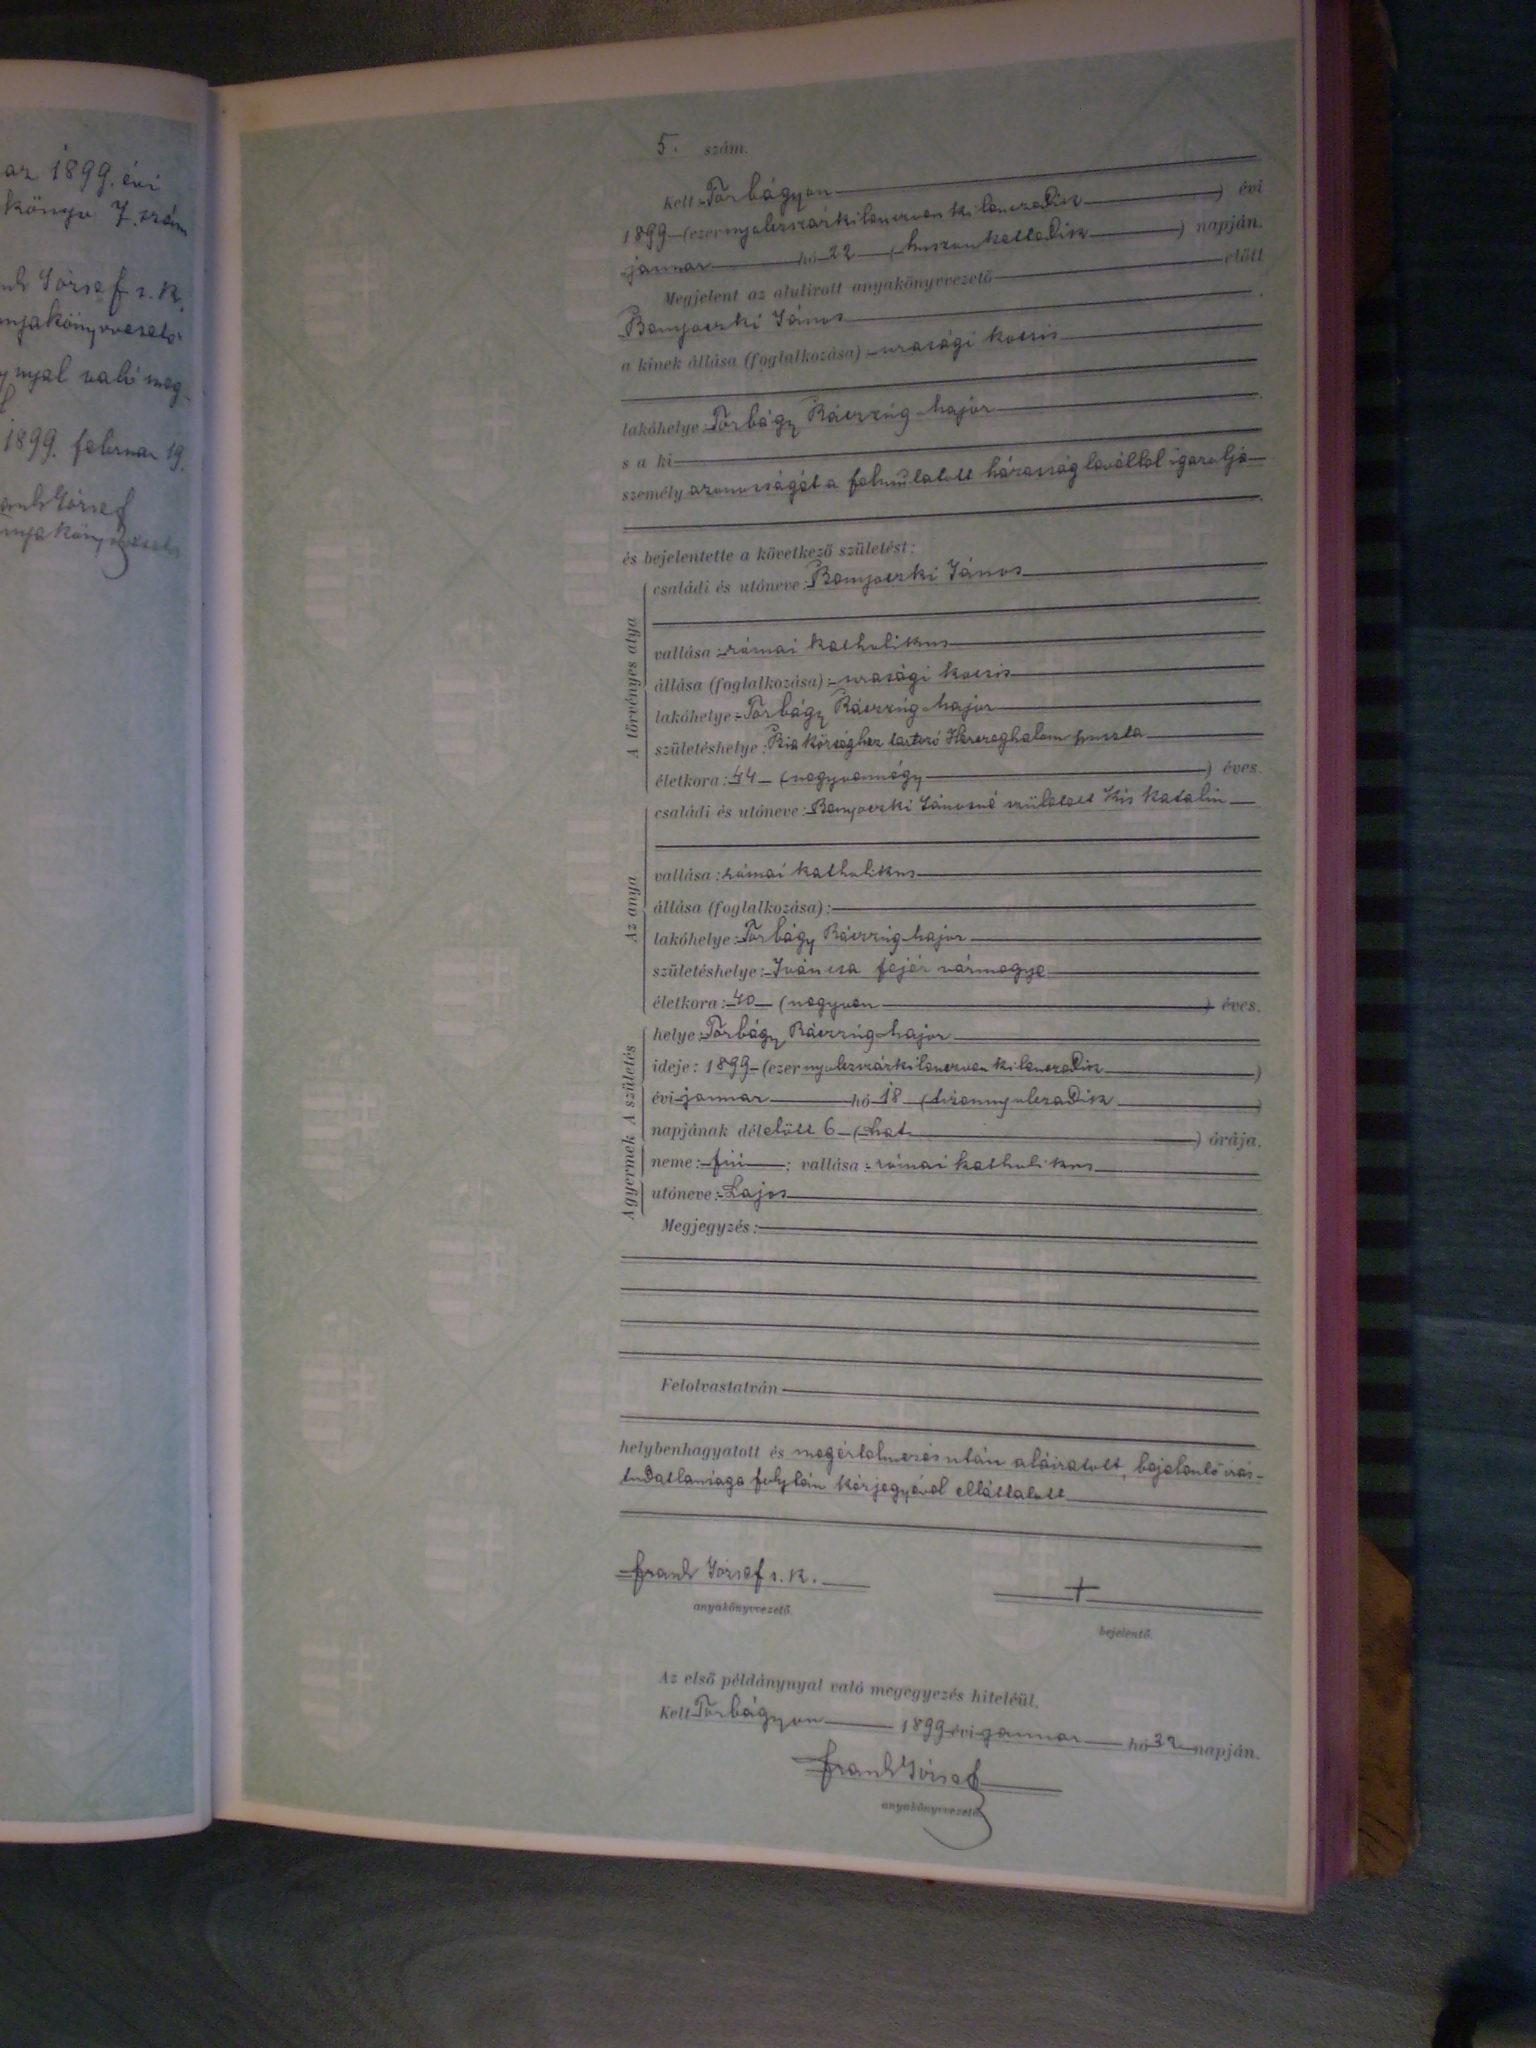 az 1899. évi
könyv 7. szám
József s. k.
anyakönyvvezető
nyal való meg-
1899. február 19.
József
5. szám.
Kelt Torbágyon
1899 (ezernyolczszázkilenczvenkilenczedik) évi
január hó 22 (huszonkettedik) napján.
Megjelent az alulirott anyakönyvvezető előtt
János
a kinek állása (foglalkozása) urasági kocsis
lakóhelye: Torbágy major
s a ki
személy azonosságát a felmutatott házassági levéllel igazolja
és bejelentette a következő születést:
A törvényes atya
családi és utóneve: János
vallása: római katholikus
állása (foglalkozása): urasági kocsis
lakóhelye: Torbágy major
születéshelye: Bia községhez tartozó Herczeghalom puszta
életkora: 44 (negyvennégy) éves.
Az anya
családi és utóneve: Jánosné született Kis Katalin
vallása: római katholikus
állása (foglalkozása):
lakóhelye: Torbágy major
születéshelye: Iváncsa fejér vármegye
életkora: 40 (negyven) éves.
A születés
helye: Torbágy major
ideje: 1899 (ezernyolczszázkilenczvenkilenczedik)
évi január hó 18 (tizennyolczadik)
napjának délelőtt 6 (hat) órája.
A gyermek
neme: fiú; vallása: római katholikus
utóneve: Lajos
Megjegyzés:
Felolvastatván
helybenhagyatott és megértelmezés után aláiratott, bejelentő irás-
tudatlansága folytán kézjegyével elláttatott
Frank József s. k.
anyakönyvvezető.
+
bejelentő.
Az első példánynyal való megegyezés hiteléül.
Kelt Torbágyon 1899 évi január hó napján.
Frank József
anyakönyvvezető